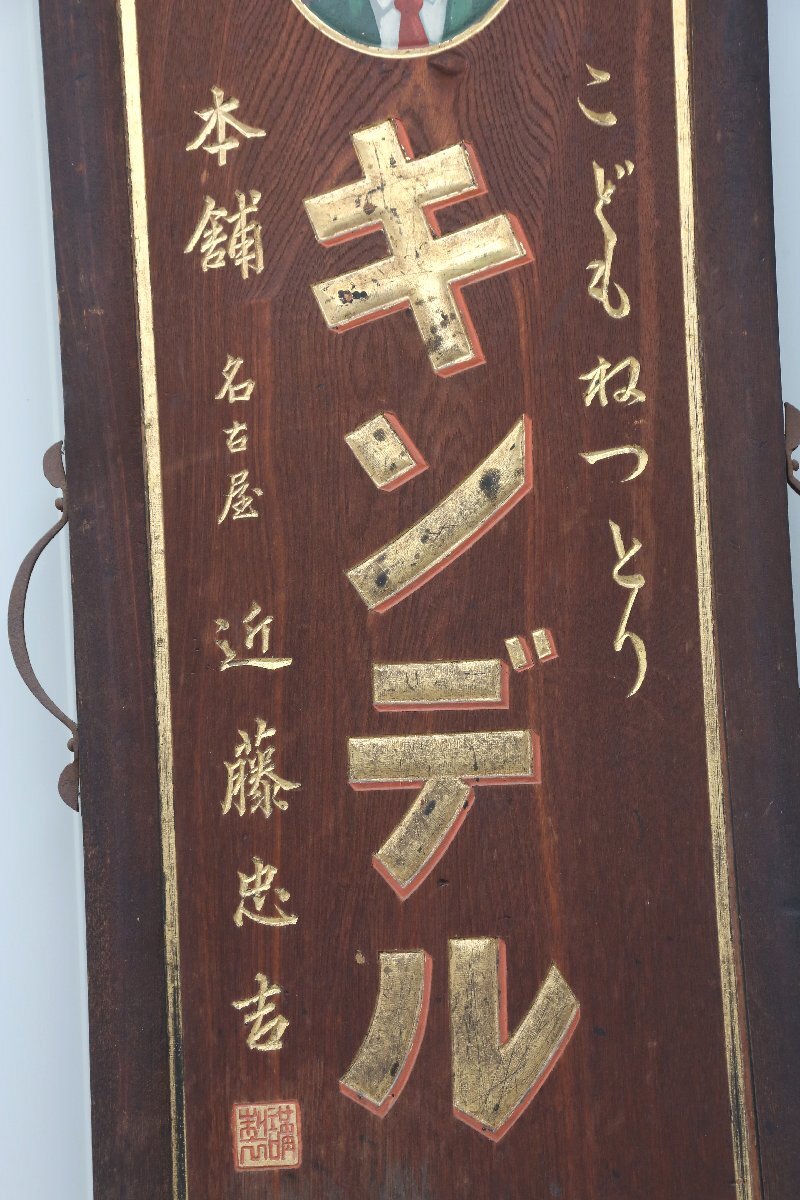 こどもねつとり
キンデル
本舗 名古屋 近藤忠吉